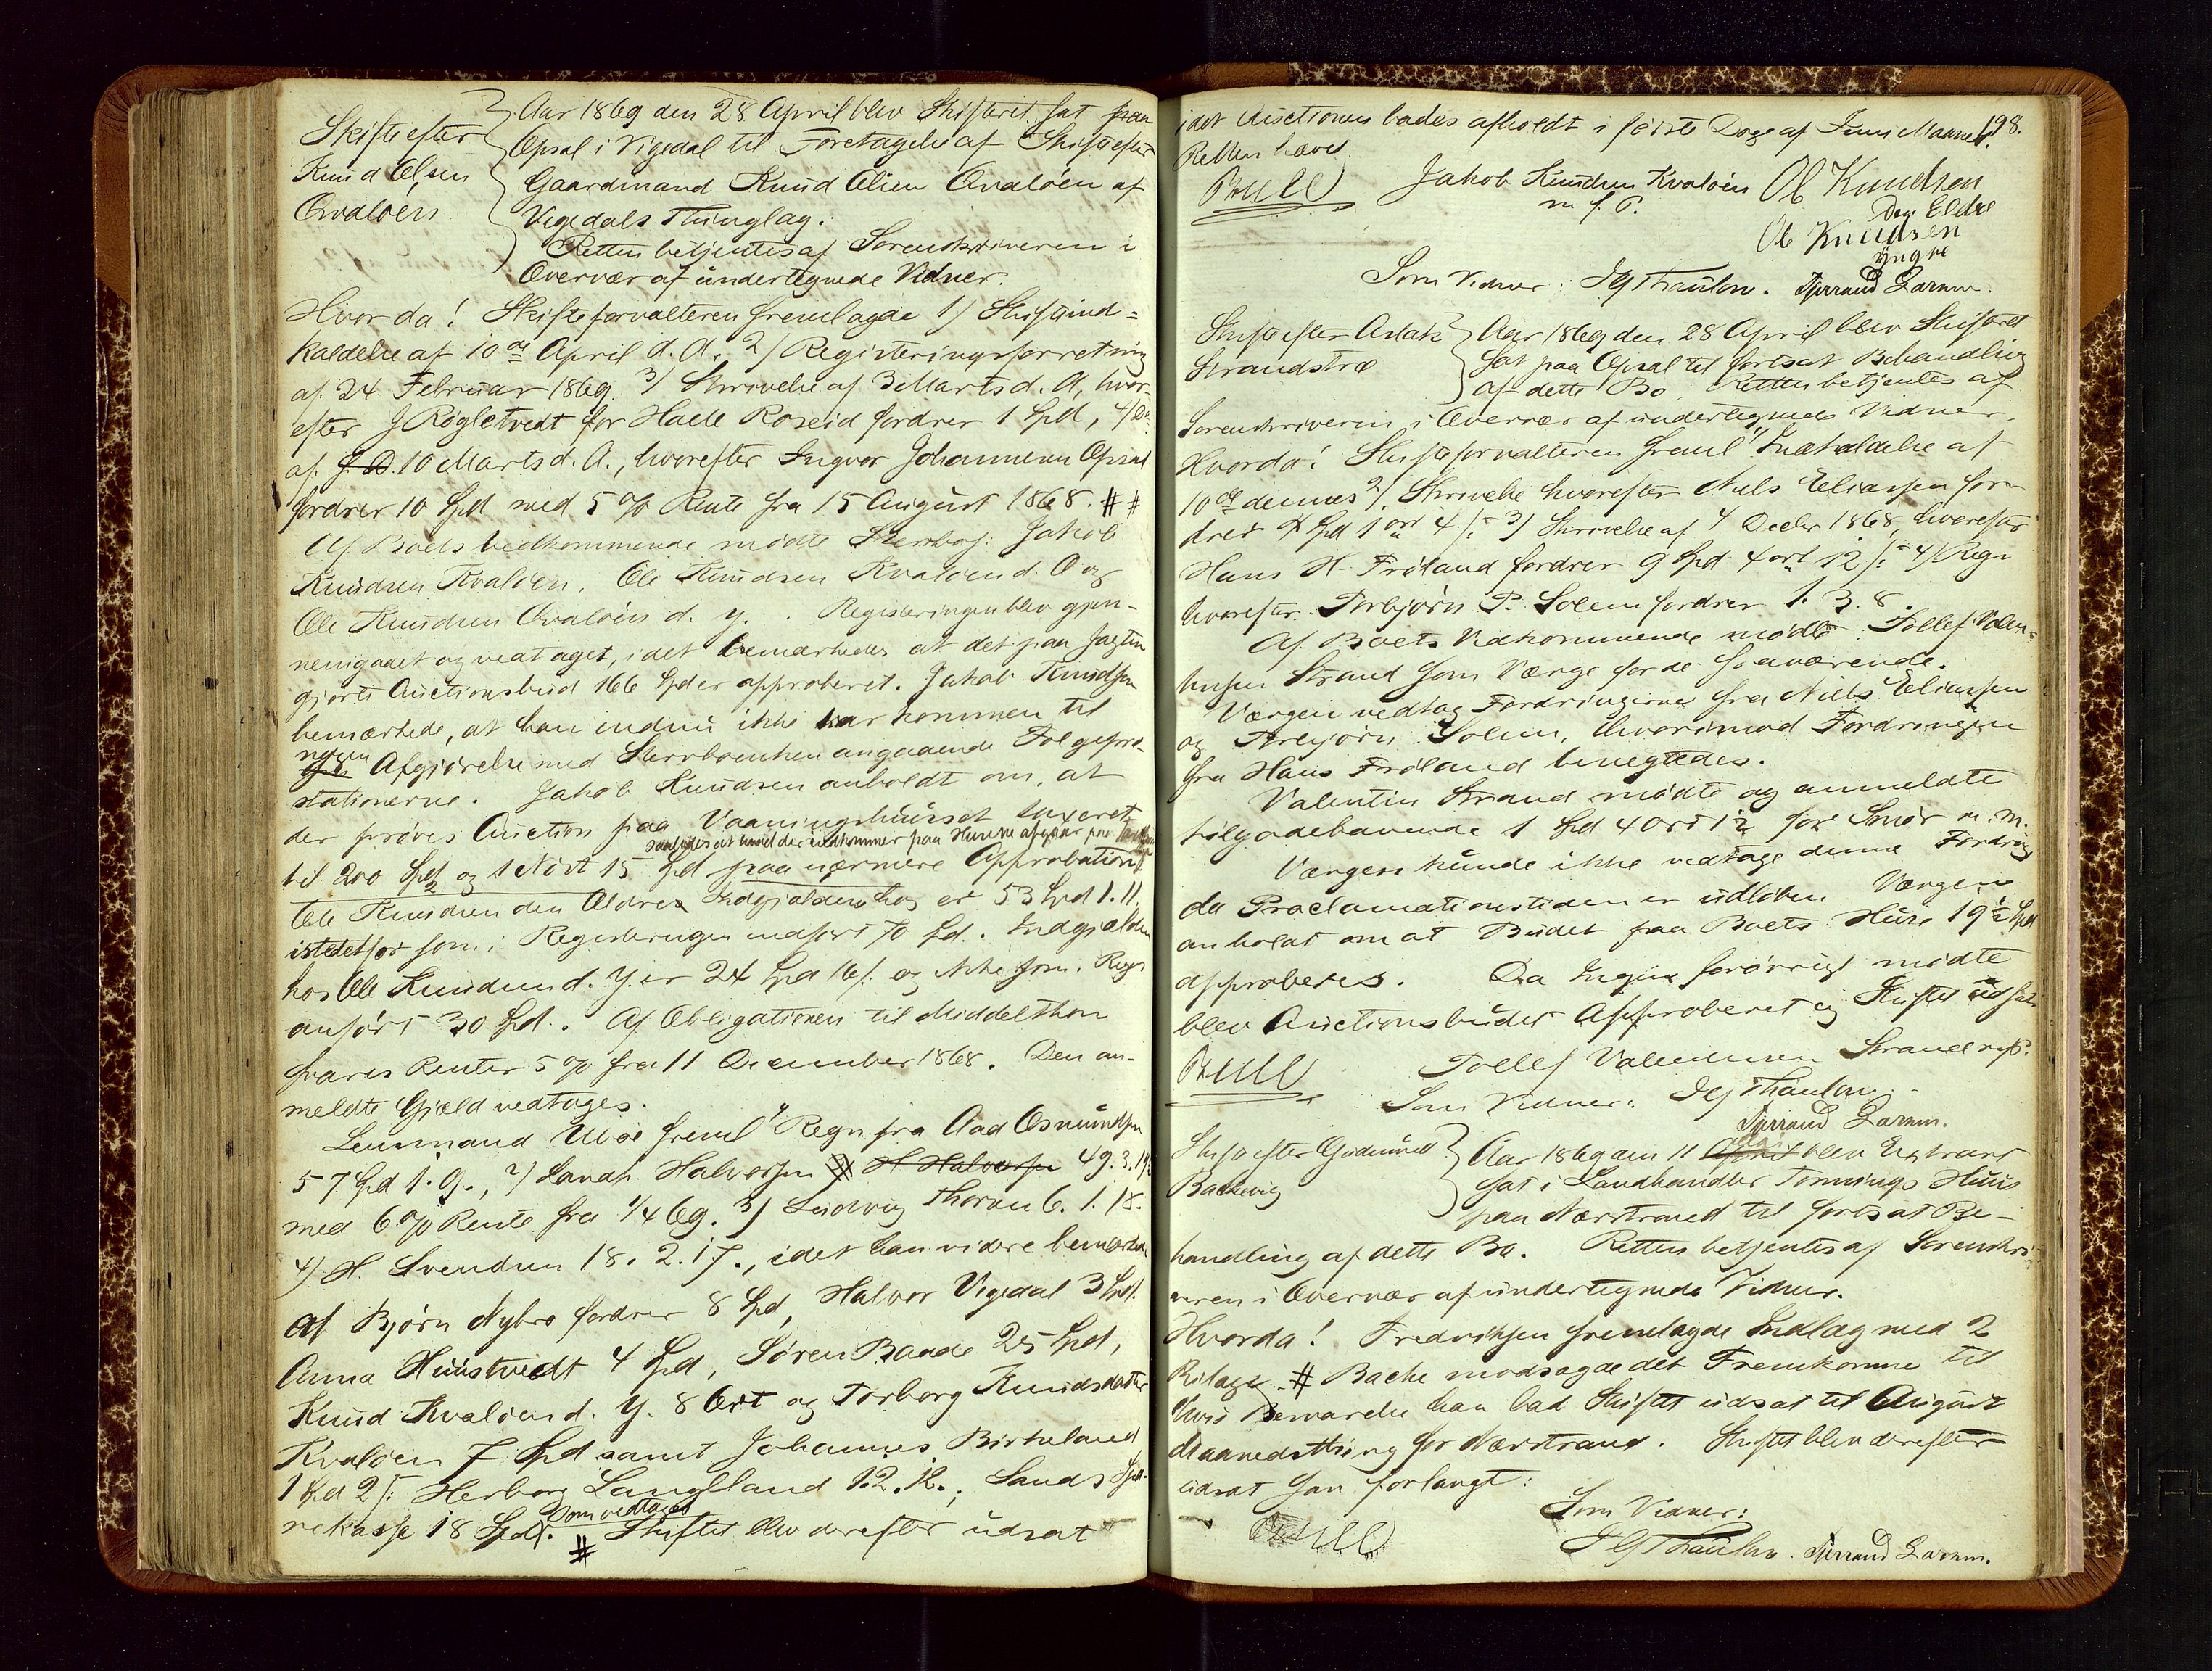 Skifte efter
Knud Olsen
Qvaløen
Aar 1869 den 28 April blev Skifteret sat paa
Opsal i Vigedal til Foretagelse af Skifte efter
Gaardmand Knud Olsen Qvaløen af
Vigedals Thinglag.
Retten betjentes af Sorenskriveren i
Overvær af undertegnede Vidner.
Hvorda! Skifteforvalteren fremlagde 1) Skifteind=
kaldelse af 10de April d. A. 2) Registeringsforretning
af 24 Februar 1869. 3) Skrivelse af 3 Marts d. A, hvor-
efter J Røgletvedt for Halle Roseid fordrer 1 Spd, 4) Do
af 10 Marts d. A., hvorefter Ingvor Johannesen Opsal
fordrer 10 Spd med 5 % Rente fra 15 August 1868. #
Af Boets Vedkommende mødte Jakob
Knudsen Kvaløen, Ole Knudsen Kvaløen d. Æ og
Ole Knudsen Qvaløen d. y. . Registeringen blev gjen-
nemgaaet og vedtaget, idet bemærkedes at det paa Jagten
gjorte Auctionsbud 166 Spd er approberet. Jakob Knudsen
bemærkede, at han endnu ikke var kommen til
nogen Afgjørelse med Stervboenken angaaende Folgepræ-
stationerne. Jakob Knudsen anholdt om, at
der prøves Auction paa Vaaningshuuset taxeret
saaledes at hvad der indkommer paa Husene afgaar paa
til 200 Spd og 1 Nøst 15 Spd paa nærmere Approbation
Ole Knudsen den Ældres Indgjæld er 53 Spd 1. 11.
istedetfor som i Registeringen indført 70 Spd. Indgjælden
hos Ole Knudsen d. y. er 24 Spd 16 s. og ikke som i Regn
anført 30 Spd. Af Obligationen til Middelthon
svares Renter 5 % fra 11 December 1868. Den an-
meldte Gjæld vedtages.
Lensmand freml 1) Regn. fra Aad Osmundsen
57 Spd 1. 9., 2) Landh Halvorsen 49. 3. 19
med 6 % Rente fra 1/4 69. 3) Ludvig Thorsen 6. 1. 18.
4) H. Svendsen 18. 2. 17., idet han videre bemærkede
at Bjørn Nybro fordrer 8 Spd, Halvor Vigedal 3 Spd.
Anna Huustvedt 4 Spd, Søren Baade 25 Spd,
Knud Kvaløen d. Y. 8 Ort og Torborg Knudsdatter
Kvaløen 7 Spd samt Johannes Birkeland
1 Spd 2 s. Herborg Langeland 1. 2. 12., Sands Spa-
rekasse 18 Spd. Som vedtaget
# Skiftet blev derefter udsat
198.
idet Auctionen bades afholdt i første Dage af Juni Maaned.
Retten hævet.
Bull Jakob Knudsen Kvaløen Ole Knudsen
m. f. P. Den Eldre
Ole Knudsen
yngre
Som Vidner:
Skifte efter Aslak
Strandstrø
Aar 1869 den 28 April blev Skifteret
sat paa Opsal til fortsat Behandling
af dette Bo. Retten betjentes af
Sorenskriveren i Overvær af undertegnede Vidner
Hvorda! Skifteforvalteren freml 1) Indkaldelse af
10de dennes 2) Skrivelse hvorefter Niels Eliassen for-
drer Spd 1 ort 4 s. 3) Skrivelse af 4 Decbr 1868, hvorefter
Hans H. Frøland fordrer 9 Spd 4 ort 12 s. 4) Regn
hvorefter Torbjørn P. Solem fordrer 1. 3. 8.
Af Boets Vedkommende mødte Tollef Valen-
tinsen Strand som Værge for de fraværende.
Værgen vedtog Fordringerne fra Niels Eliassen
og Torbjørn Solem, hvorimod Fordringen
fra Hans Frøland benegtedes.
Valentin Strand mødte og anmeldte
tilgodehavende 1 Spd 4 Ort 12 for Smør m. m.
Værgen kunde ikke vedtage denne Fordring
da Proclamationstiden er udløben Værgen
anholdt om at Budet paa Boets Huse 19½ Spd
approberes. Da Ingen forøvrigt mødte
blev Auctionsbudet Approberet og Skiftet udsat.
Bull Tollef Valentinsen Strand
Som Vidner:
Skifte efter Gudmund
Backevig
Aar 1869 den 11 blev Extraret
sat i Landhandler Tonnings Huus
paa Nærstrand til fortsat Be-
handling af dette Bo. Retten betjentes af Sorenskri-
veren i Overvær af undertegnede Vidner.
Hvorda! Fredriksen fremlagde Indlæg med 2
Bilage. # Bache modsagde det Fremkomne til
hvis Besvarelse han bad Skiftet udsat til August
Maanedsthing for Nærstrand. Skiftet blev derefter
udsat som forlangt:
Som Vidner:
Bull